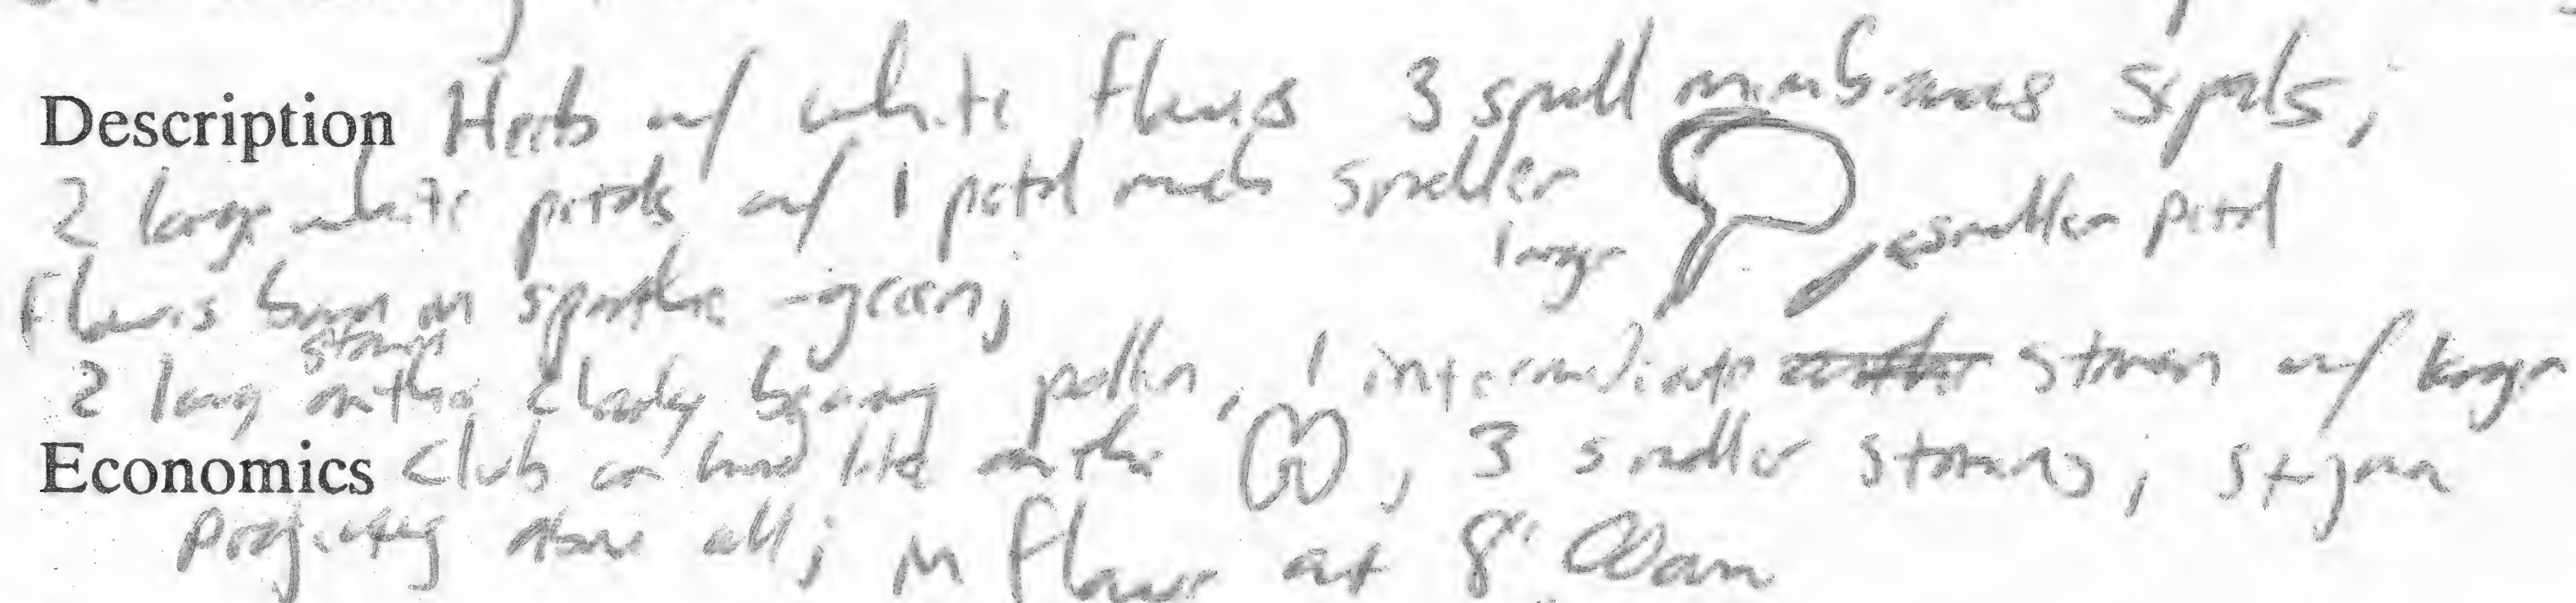 Description Herbs w/ white flowers 3 small membranous sepals;
2 large white petals w/ 1 petal much smaller
large smaller petal
Flowers born in spathe - green;
stamen
2 long anther clearly bearing pollen, 1 intermediate stamen w/ large
Economics Club or hand like anther, 3 smaller stamens; stigma
projecting above all; in flower at 8:00am